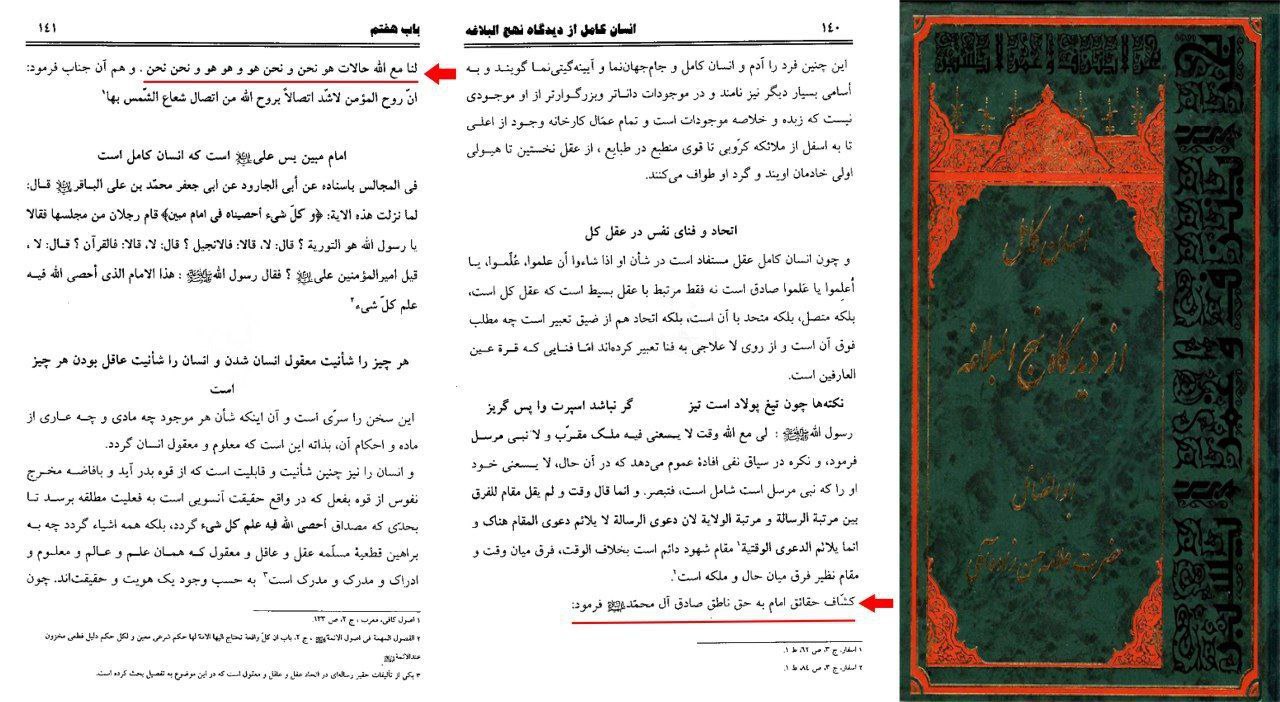 ۱۴۰ انسان کامل از دیدگاه نهج البلاغه
این چنین فرد را آدم و انسان کامل و جام‌جهان‌نما و آیینه‌گیتی‌نما گویند و به
أسامی بسیار دیگر نیز نامند و در موجودات داناتر وبزرگوارتر از او موجودی
نیست که زبده و خلاصه موجودات است و تمام عمّال کارخانه وجود از اعلی
تا به اسفل از ملائکه کرّوبی تا قوی منطبع در طبایع ، از عقل نخستین تا هیولی
اولی خادمان اویند و گرد او طواف می‌کنند.
اتحاد و فنای نفس در عقل کل
و چون انسان کامل عقل مستفاد است در شأن او اذا شاءوا أن علموا، عُلّموا، یا
أعلِموا یا عَلموا صادق است نه فقط مرتبط با عقل بسیط است که عقل کل است،
بلکه متصل، بلکه متحد با آن است، بلکه اتحاد هم از ضیق تعبیر است چه مطلب
فوق آن است و از روی لا علاجی به فنا تعبیر کرده‌اند امّا فنایی که قرة عین
العارفین است.
نکته‌ها چون تیغ پولاد است تیز گر نباشد اسپرت وا پس گریز
رسول الله ﷺ : لی مع الله وقت لا یسعنی فیه ملک مقرّب و لا نبی مرسل
فرمود، و نکره در سیاق نفی افادهٔ عموم می‌دهد که در آن حال، لا یسعنی خود
او را که نبی مرسل است شامل است، فتبصر. و انما قال وقت و لم یقل مقام للفرق
بین مرتبة الرسالة و مرتبة الولایة لان دعوی الرسالة لا یلائم دعوی المقام هناک و
انما یلائم الدعوی الوقتیة۱ مقام شهود دائم است بخلاف الوقت، فرق میان وقت و
مقام نظیر فرق میان حال و ملکه است۲.
کشّاف حقائق امام به حق ناطق صادق آل محمّد ﷺ فرمود:
۱ اسفار، ج ۳، ص ۶۲، ط ۱.
۲ اسفار، ج ۳، ص ۸۴، ط ۱.
باب هفتم ۱۴۱
لنا مع الله حالات هو نحن و نحن هو و هو هو و نحن نحن . و هم آن جناب فرمود:
انّ روح المؤمن لاشّد اتصالاً بروح الله من اتصال شعاع الشّمس بها۱
امام مبین یس علی است که انسان کامل است
فی المجالس باسناده عن أبی الجارود عن ابی جعفر محمّد بن علی الباقر قال:
لما نزلت هذه الایة: ﴿و کلّ شیء أحصیناه فی امام مبین﴾ قام رجلان من مجلسها فقالا
یا رسول الله هو التوریة ؟ قال: لا، قالا: فالانجیل ؟ قال: لا، قالا: فالقرآن ؟ قـال: لا ،
قیل امیرالمؤمنین علی ؟ فقال رسول الله ﷺ : هذا الامام الذی أحصی الله فیه
علم کلّ شیء۲
هر چیز را شأنیت معقول انسان شدن و انسان را شأنیت عاقل بودن هر چیز
است
این سخن را سرّی است و آن اینکه شأن هر موجود چه مادی و چه عاری از
ماده و احکام آن، بذاته این است که معلوم و معقول انسان گردد.
و انسان را نیز چنین شأنیت و قابلیت است که از قوه بدر آید و بافاضه مخرج
نفوس از قوه بفعل که در واقع حقیقت آنسویی است به فعلیت مطلقه برسد تـا
بحدّی که مصداق أحصی الله فیه علم کل شیء گردد، بلکه همه اشیاء گردد چه به
براهین قطعیهٔ مسلّمه عقل و عاقل و معقول کـه همـان علـم و عالم و معلوم و
ادراک و مدرک و مدرک است۳ به حسب وجود یک هویت و حقیقت‌اند. چون
۱ اصول کافی، معرب ، ج ۲، ص ۱۳۳.
۲ الفصول المهمة فی اصول الائمة ، ج ۲، باب ان کلّ واقعة تحتاج الیها الامة لها حکم شرعی معین و لکل حکم دلیل قطعی مخزون
عندالائمة
۳ یکی از تألیفات حقیر رساله‌ای در اتحاد عقل و عاقل و معقول است که در این موضوع به تفصیل بحث کرده است.
انسان کامل
از دیدگاه نهج البلاغه
حضرت علامه حسن زاده آملی